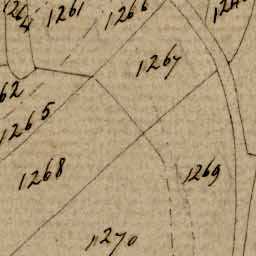 1264
1261
1266
124
1267
62
1265
1268
1269
1270